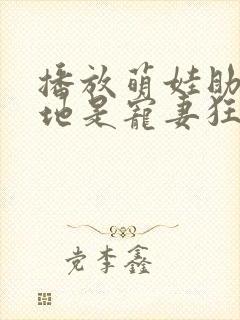 播放萌娃助
地是宠妻狂
党李鑫